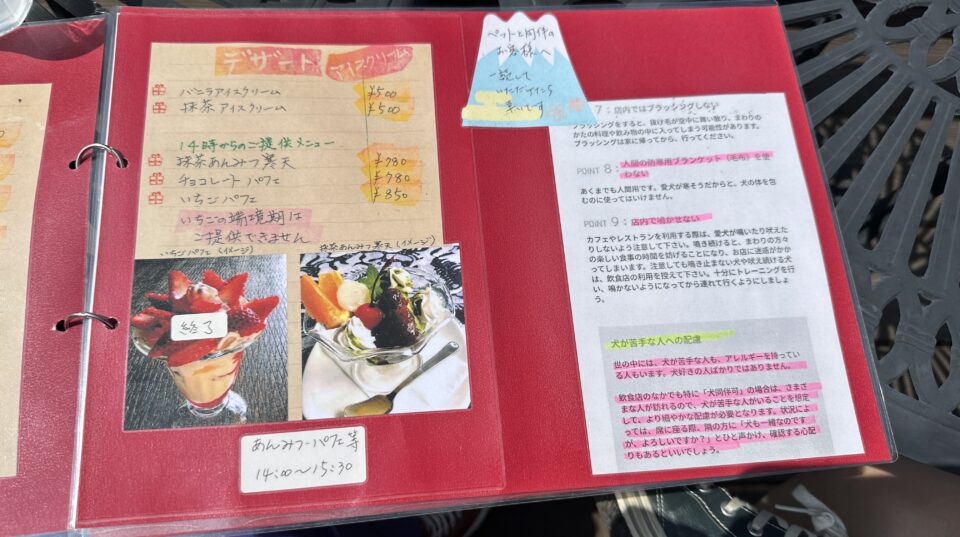 デザート
アイスクリーム
バニラアイスクリーム ¥500
抹茶アイスクリーム ¥500
14時からのご提供メニュー
抹茶あんみつ寒天 ¥780
チョコレートパフェ ¥780
いちごパフェ ¥850
いちごの端境期は
ご提供できません
いちごパフェ(イメージ)
抹茶あんみつ寒天(イメージ)
終了
あんみつ・パフェ等
14:00〜15:30
ペットと同伴の
お客様へ
一読して
いただけたら
幸いです
7：店内ではブラッシングしない
ブラッシングをすると、抜け毛が空中に舞い散り、まわりの
かたの料理や飲み物の中に入ってしまう可能性があります。
ブラッシングは家に帰ってから、行ってください。
POINT 8：人間の防寒用ブランケット（毛布）を使
わない
あくまでも人間用です。愛犬が寒そうだからと、犬の体を包
むのに使ってはいけません。
POINT 9：店内で鳴かせない
カフェやレストランを利用する際は、愛犬が鳴いたり吠えた
りしないよう注意して下さい。鳴き続けると、まわりの方々
の楽しい食事の時間を妨げることになり、お店に迷惑がかか
ってしまいます。注意しても鳴き止まない犬や吠え続ける犬
は、飲食店の利用を控えて下さい。十分にトレーニングを行
い、鳴かないようになってから連れて行くようにしましょ
う。
犬が苦手な人への配慮
世の中には、犬が苦手な人も、アレルギーを持ってい
る人もいます。犬好きの人ばかりではありません。
飲食店のなかでも特に「犬同伴可」の場合は、さまざ
まな人が訪れるので、犬が苦手な人がいることを想定
して、より細やかな配慮が必要となります。状況によ
っては、席に座る際、隣の方に「犬も一緒なのです
が、よろしいですか？」とひと声かけ、確認する心配
りもあるといいでしょう。